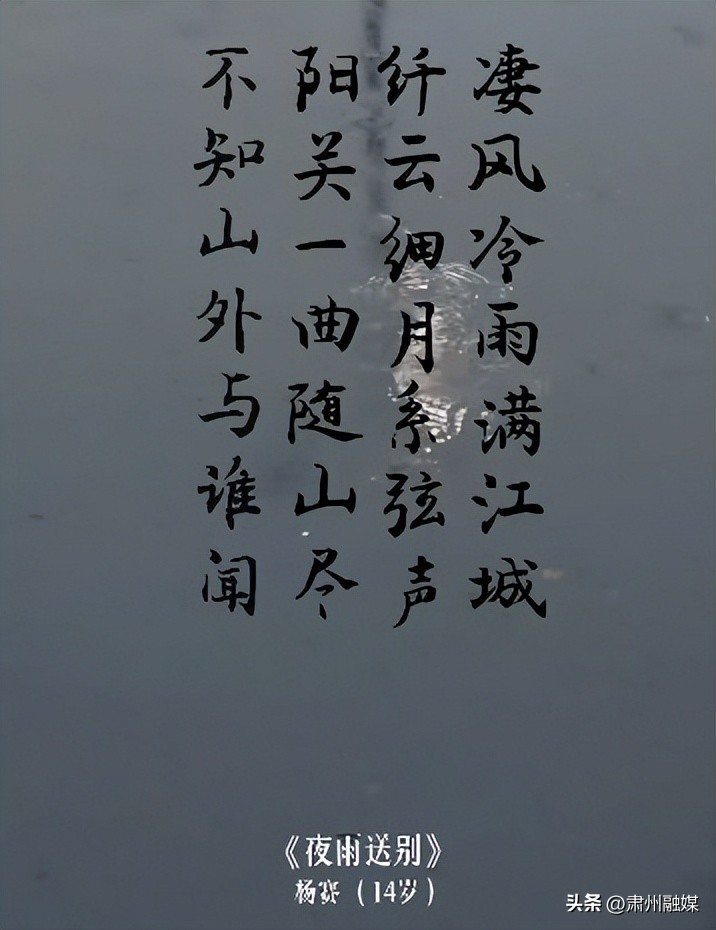 凄风冷雨满江城
纤云细月系弦声
阳关一曲随山尽
不知山外与谁闻
《夜雨送别》
杨赛（14岁）
头条 @肃州融媒